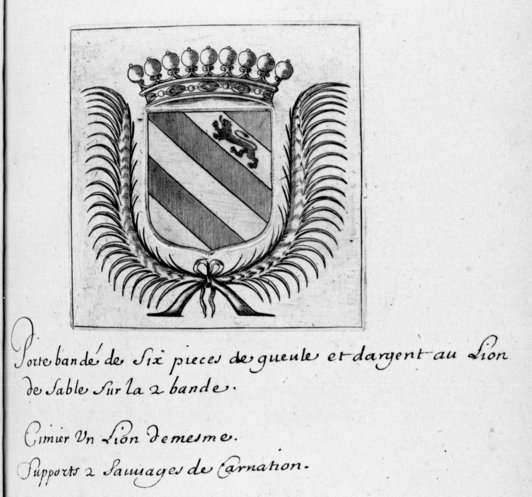 Porte bandé de Six pieces de gueule et dargent au Lion
de sable sur la 2 bande.
Cimier Vn Lion demesme.
Supports 2 Sauuages de Carnation.